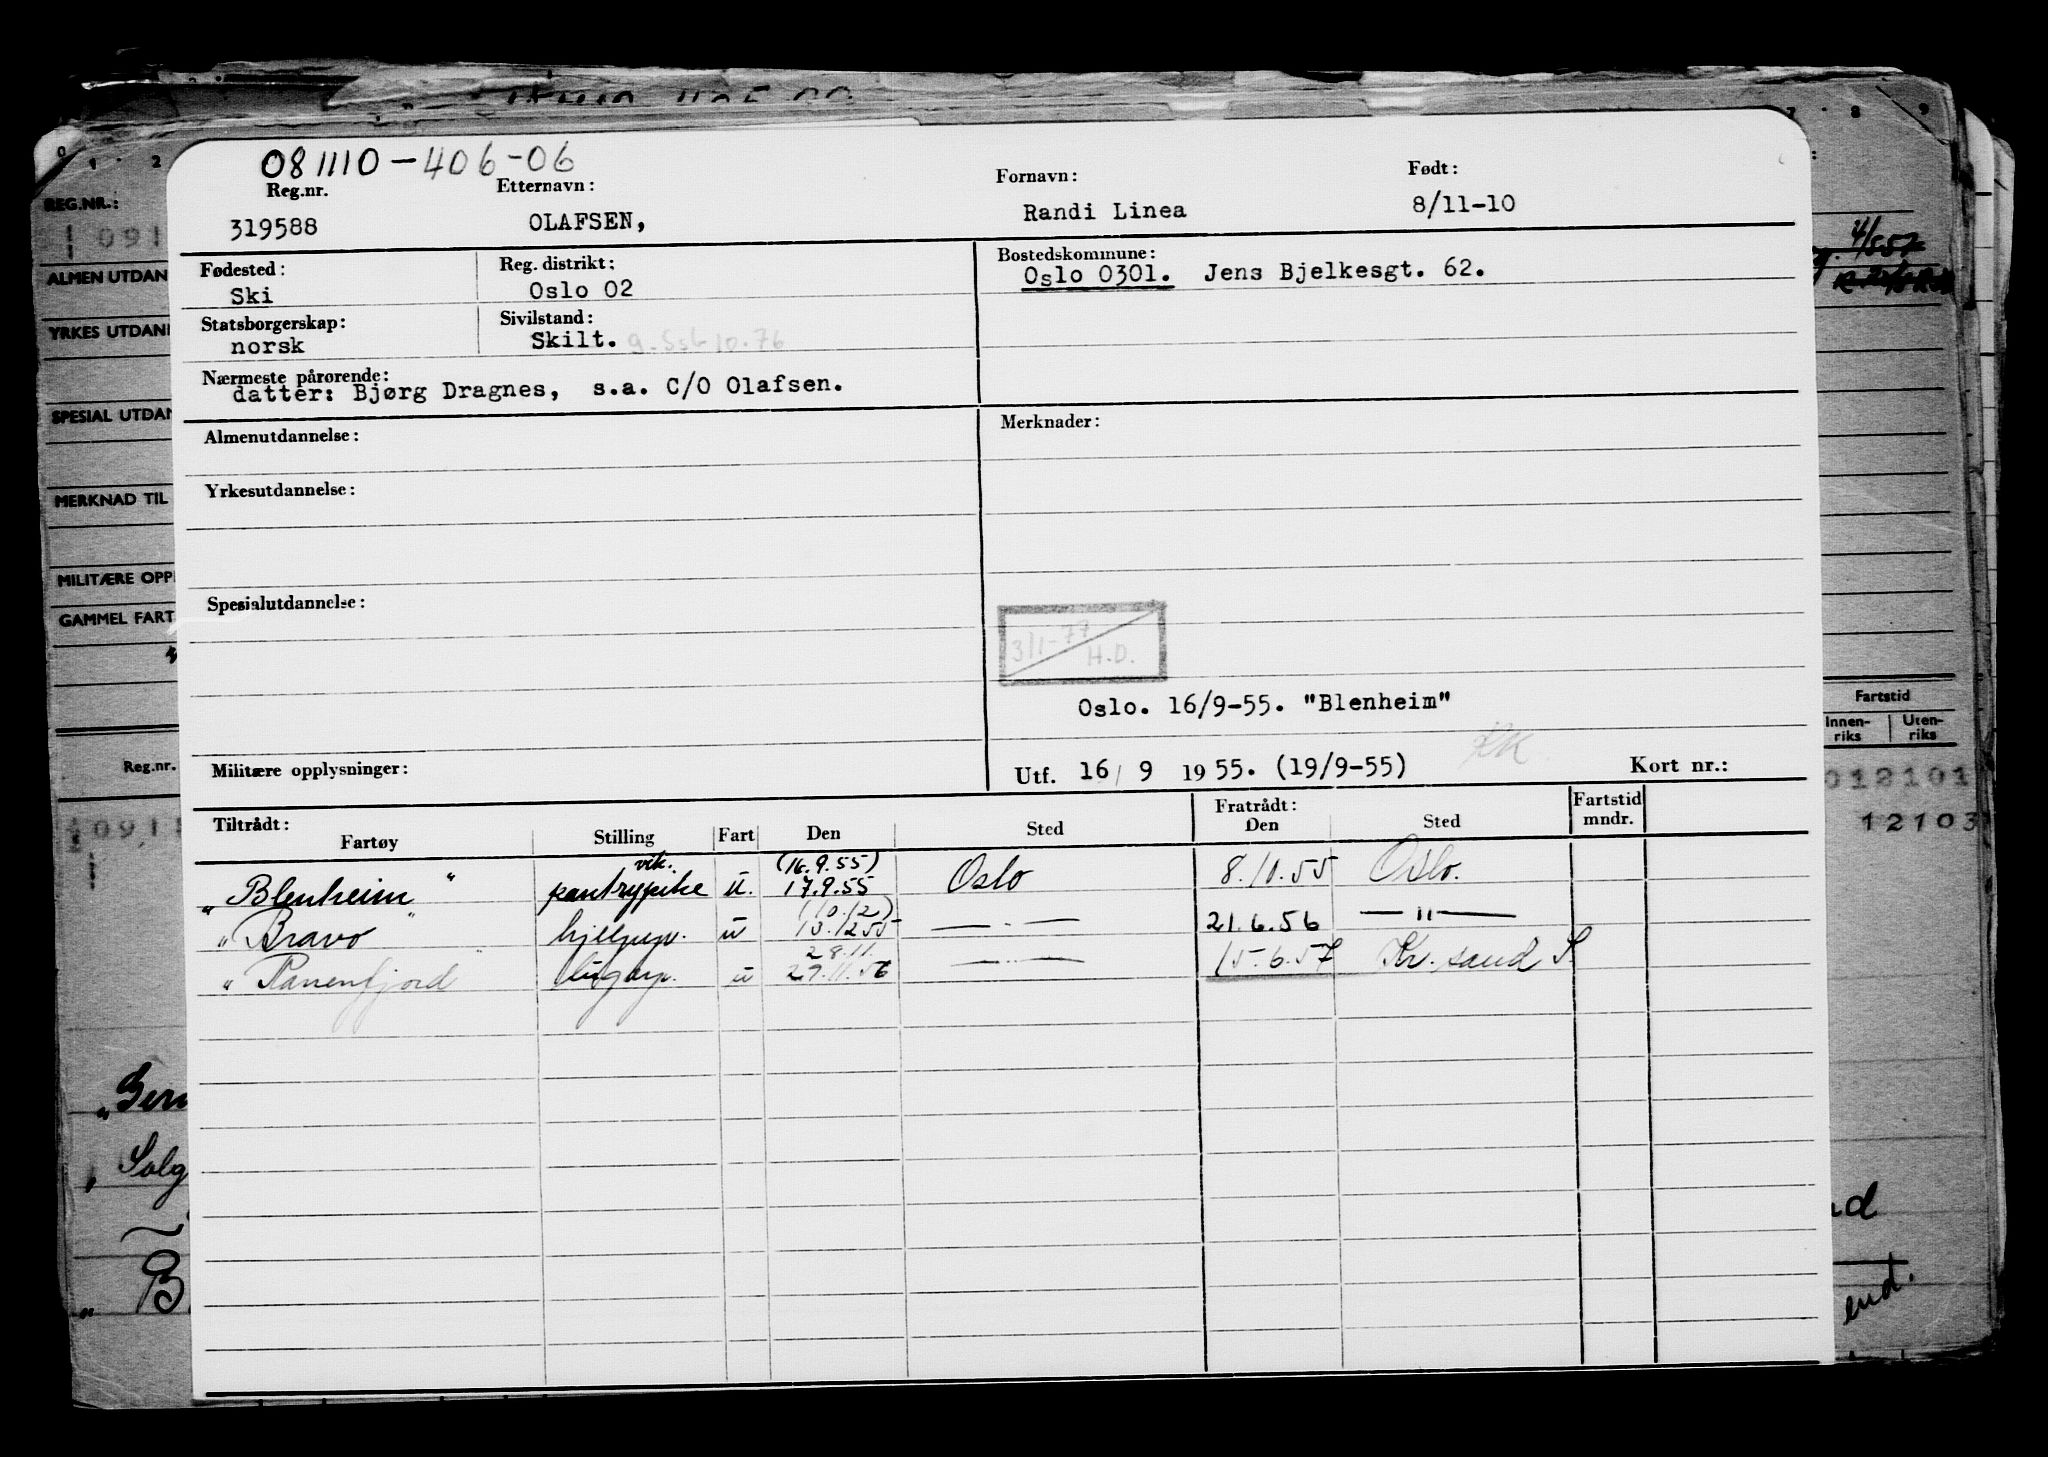 081110-406-06
Reg.nr. Etternavn: Fornavn: Født:
319588 OLAFSEN, Randi Linea 8/11-10
Fødested: Reg. distrikt: Bostedskommune:
Ski Oslo 02 Oslo 0301. Jens Bjelkesgt. 62.
Statsborgerskap: Sivilstand:
norsk Skilt.
Nærmeste pårørende:
datter: Bjørg Dragnes, s.a. C/O Olafsen.
Almenutdannelse: Merknader:
Yrkesutdannelse:
Spesialutdannelse:
3/1-77 H.D.
Oslo. 16/9-55. "Blenheim"
Militære opplysninger: Utf. 16/ 9 1955. (19/9-55) Kort nr.:
Tiltrådt: Fratrådt: Fartstid
Fartøy Stilling Fart Den Sted Den Sted mndr.
vik. (16.9.55)
"Blenheim" pantrypike u. 17.9.55 Oslo 8.10.55 Oslo.
(10.12)
"Bravo" hjelpep. u 13.12 55 — · — 21.6.56 — " —
28.11.
"Ranenfjord" lugarp. u 29.11.56 — · — 15.6.57 Kr.sand S.
REG.NR.:
ALMEN UTDAN
YRKES UTDAN
SPESIAL UTDAN
MERKNAD TIL
MILITÆRE OPP
GAMMEL FART
Reg.nr.
0911
Fartstid
Innen-riks Uten-riks
012101
12103
Solg
B
end.